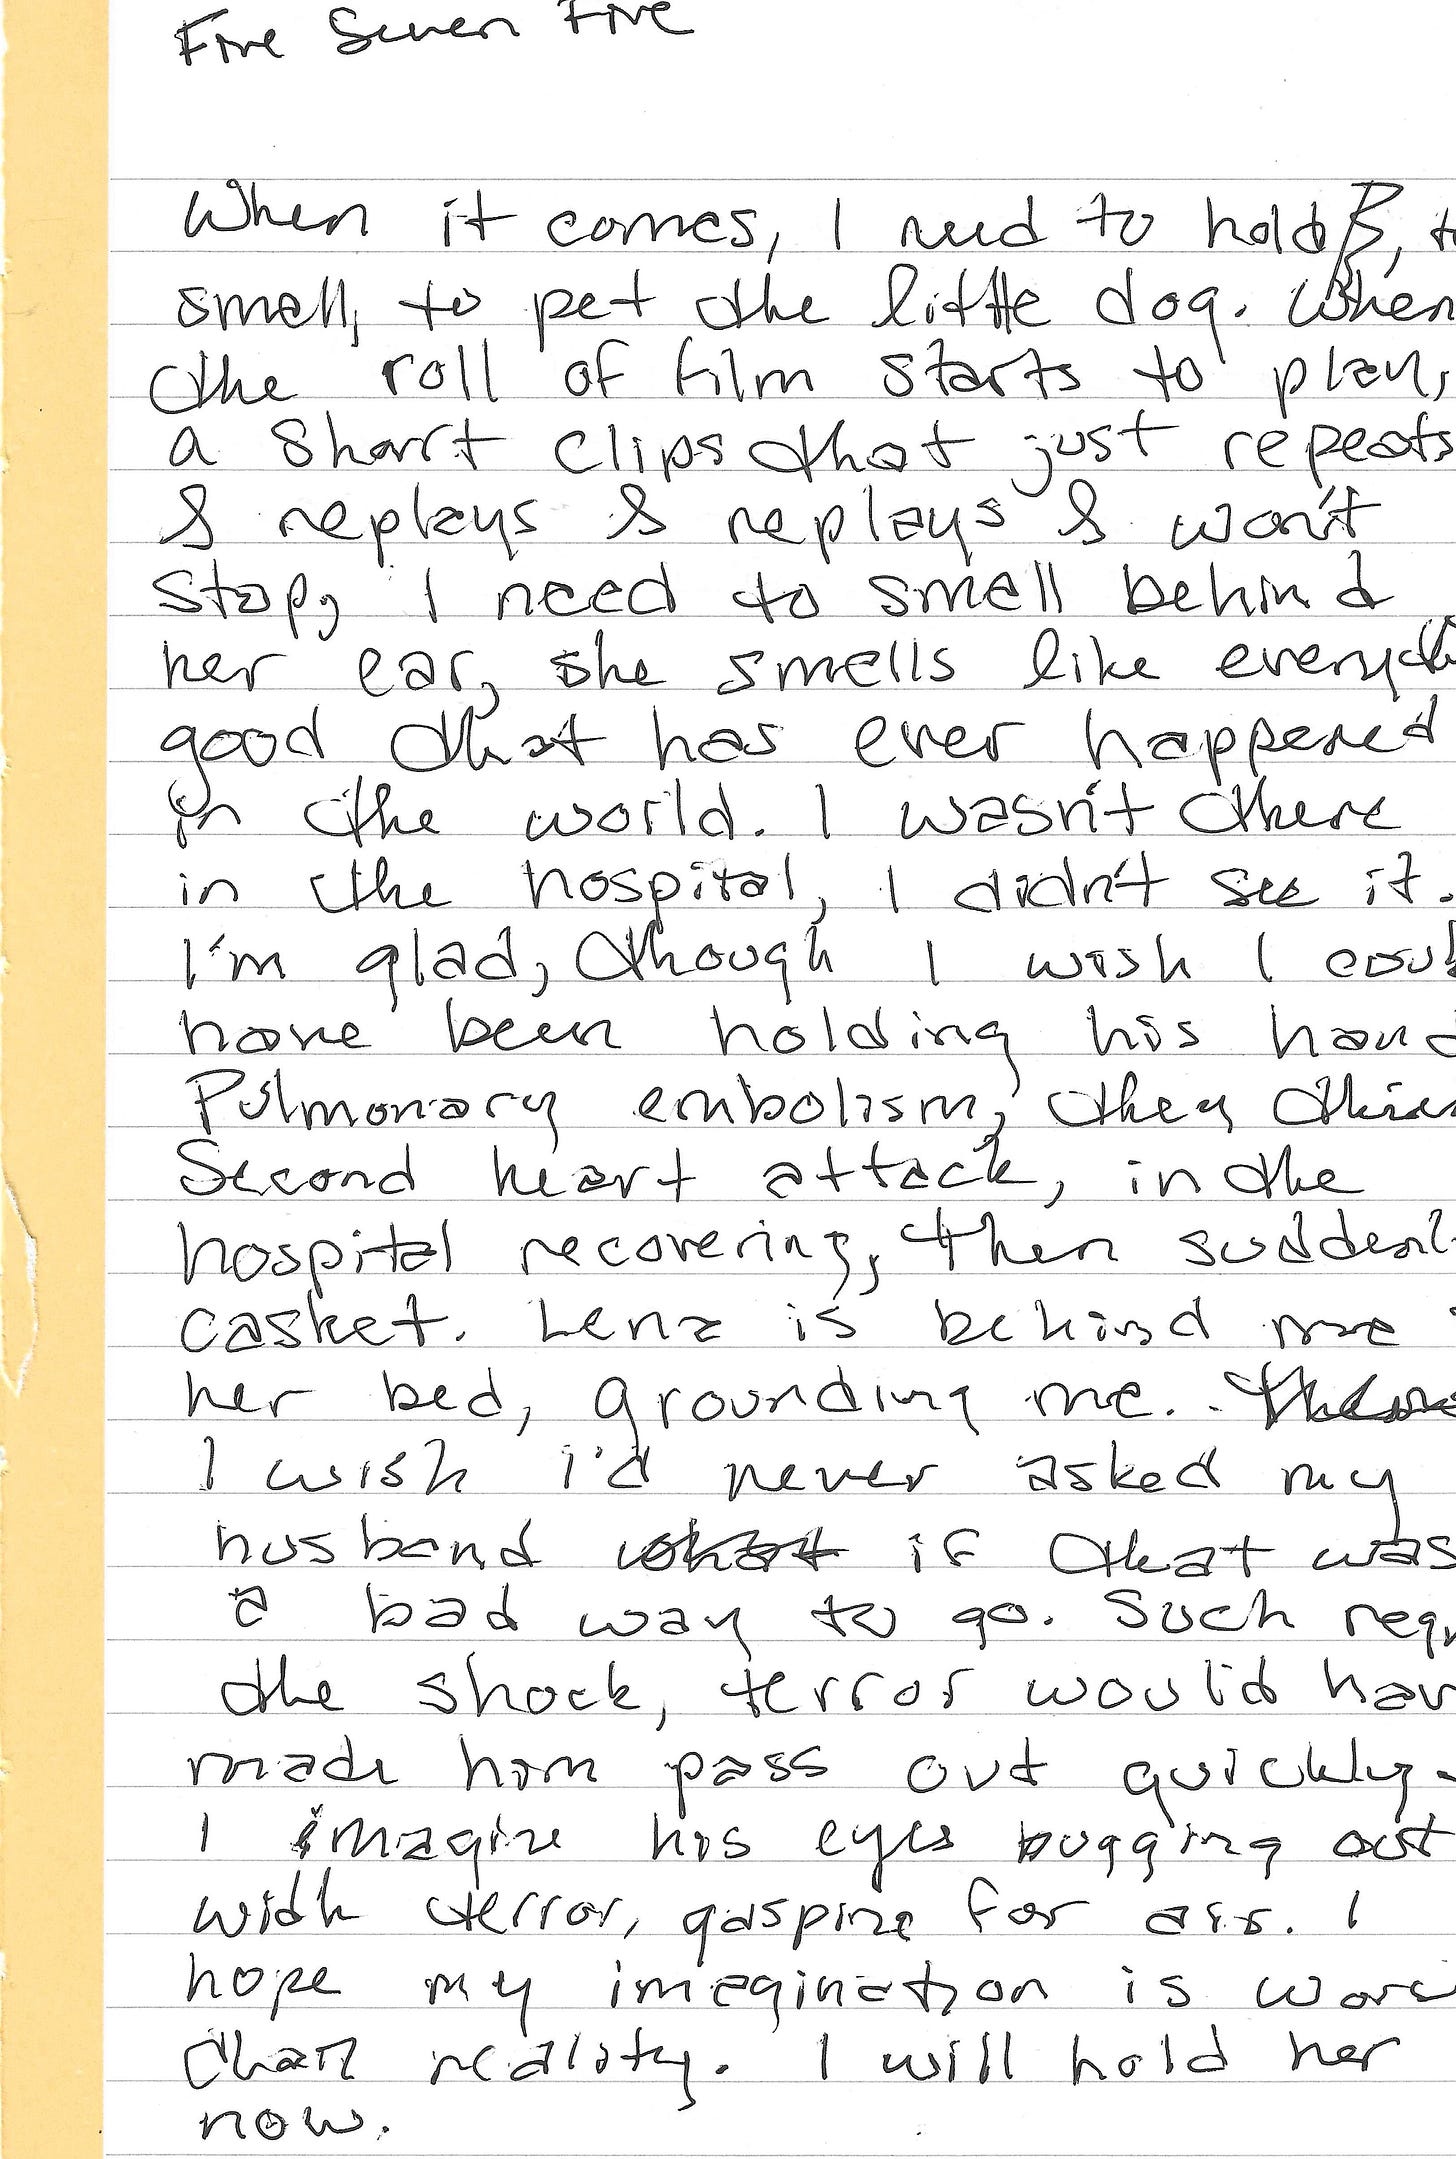 Five Seven Five
When it comes, I need to hold B,
smell, to pet the little dog. When
the roll of film starts to play,
a short clips that just repeats
& replays & replays & won't
stop, I need to smell behind
her ear, she smells like everyth
good that has ever happened
in the world. I wasn't there
in the hospital, I didn't see it.
I'm glad, though I wish I coul
have been holding his hand
Pulmonary embolism, they thin
Second heart attack, in the
hospital recovering, then suddenl
casket. Lena is behind me
her bed, grounding me.
I wish I'd never asked my
husband what if that was
a bad way to go. Such regr
the shock, terror would hav
made him pass out quickly.
I imagine his eyes bugging out
with terror, gasping for air. I
hope my imagination is wors
than reality. I will hold her
now.